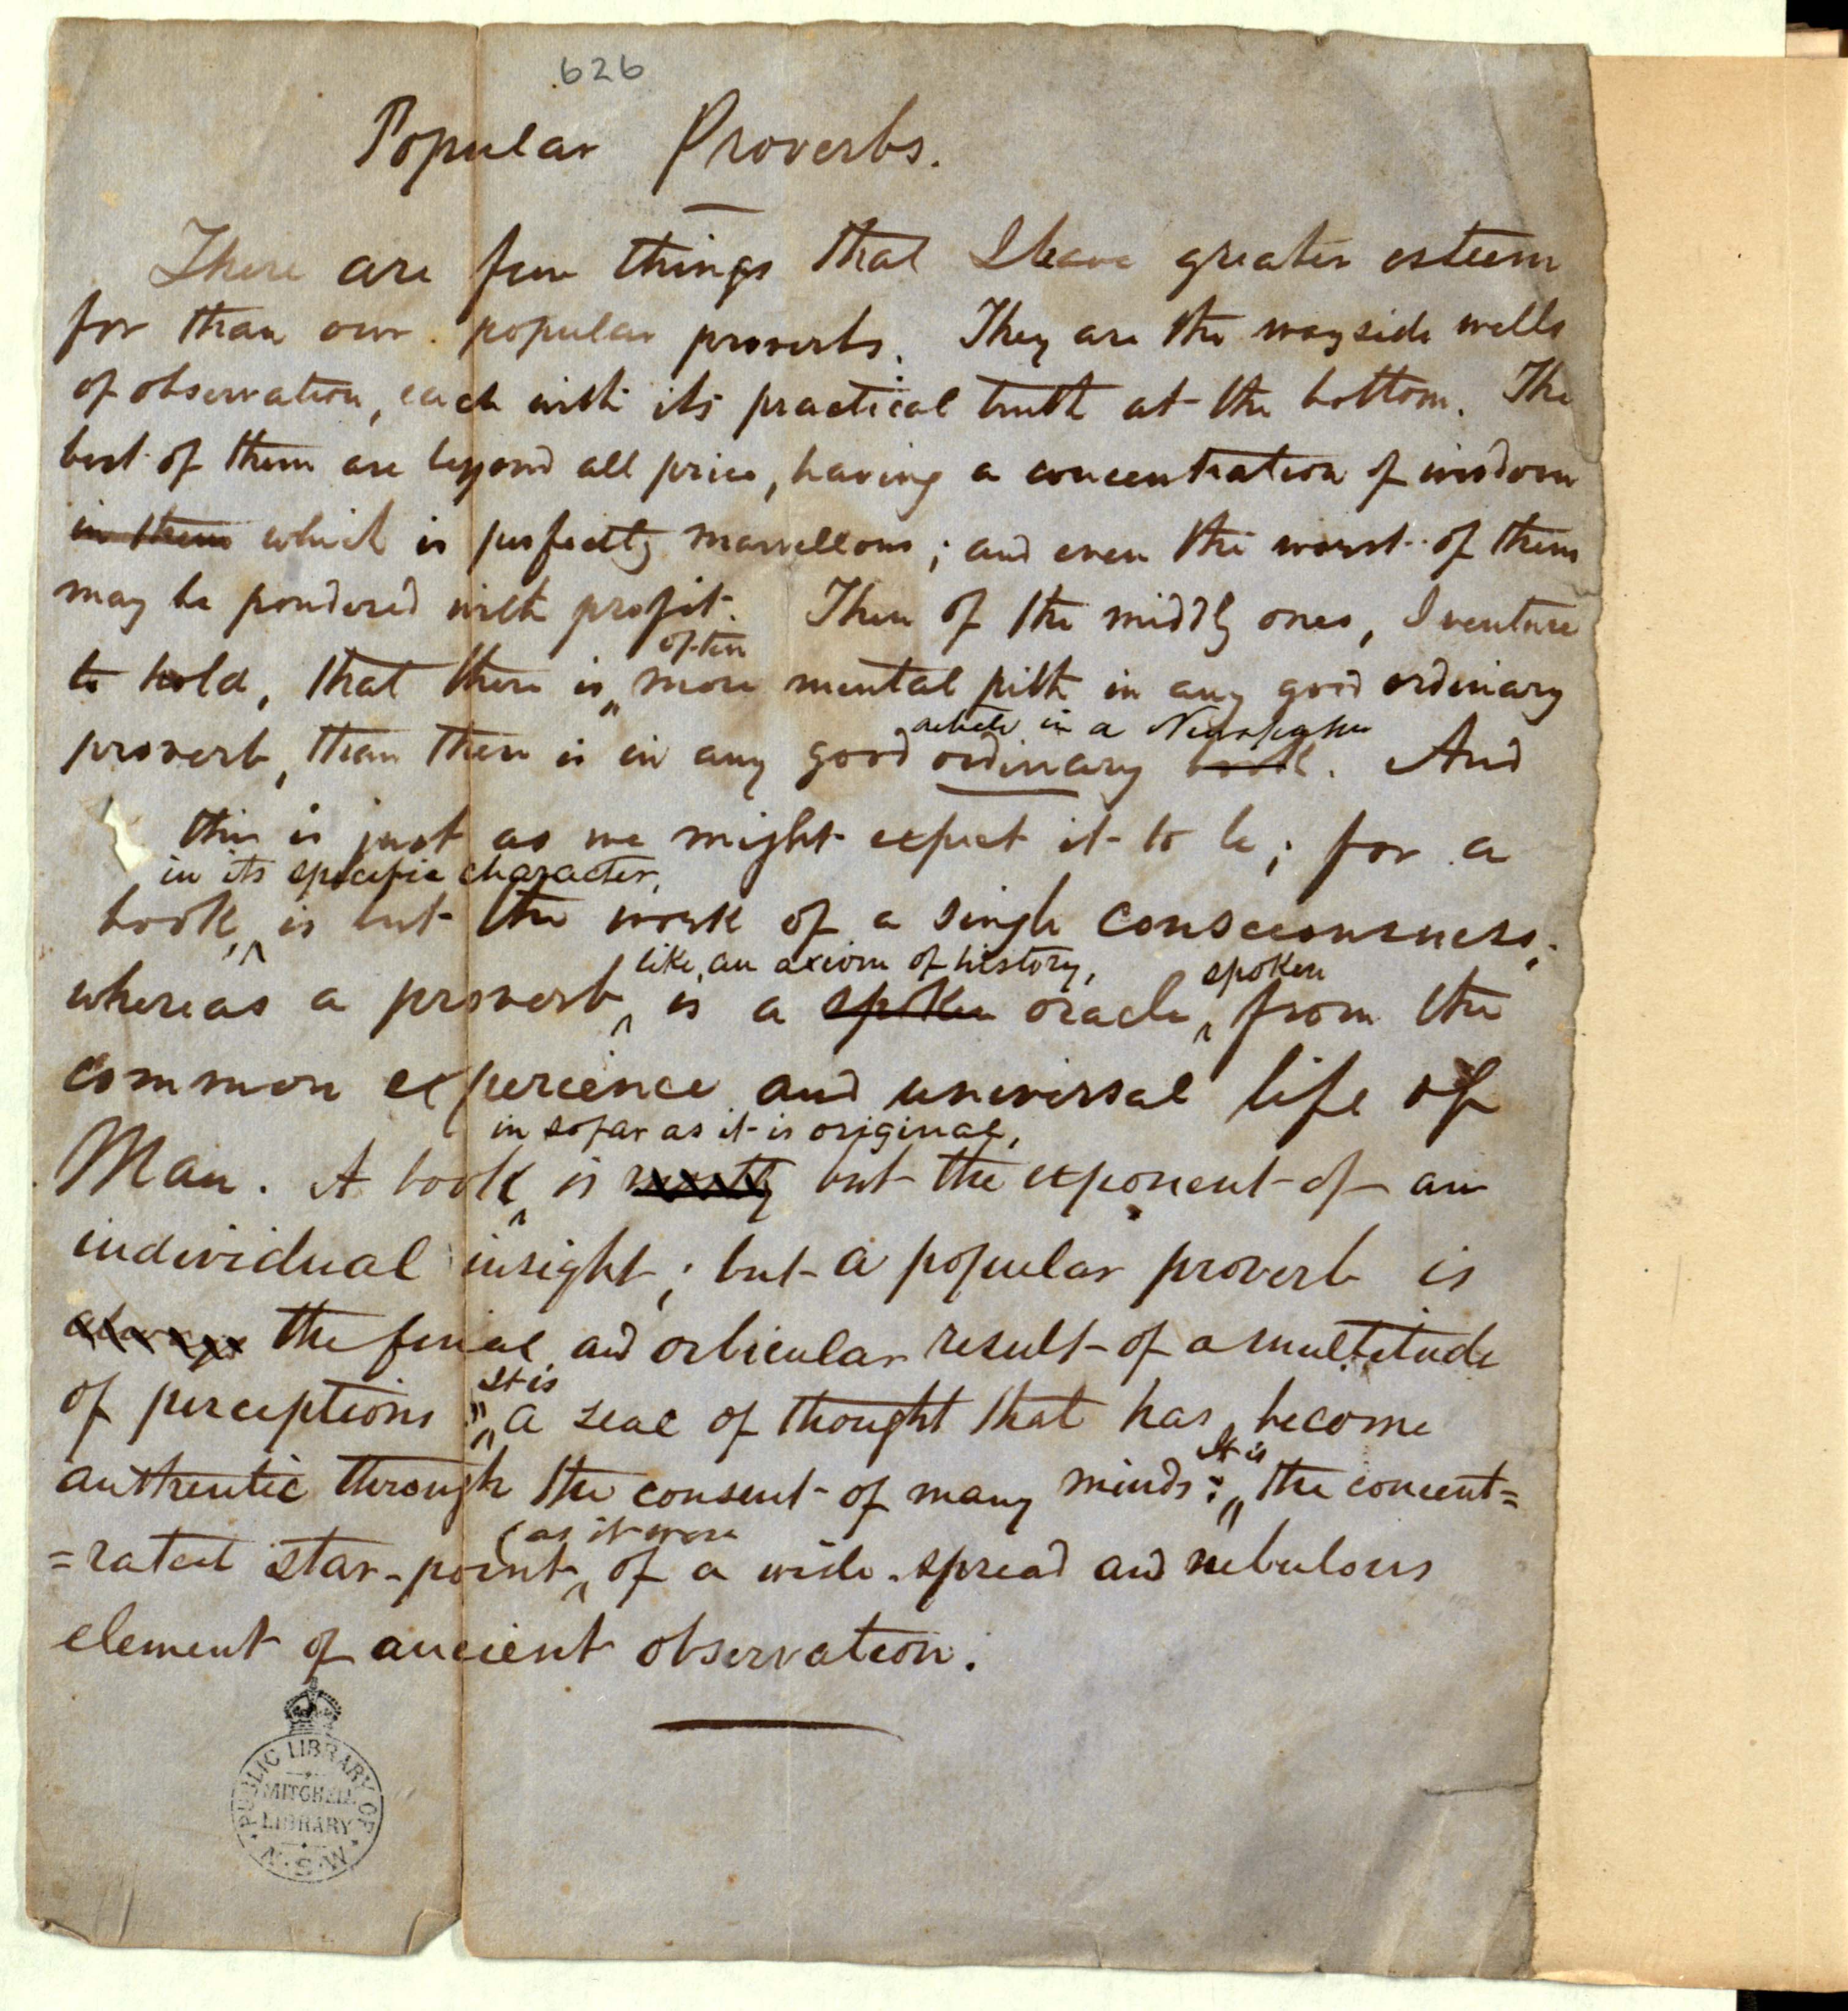 626
Popular Proverbs.
There are few things that I have greater esteem
for than our popular proverbs. They are the wayside wells
of observation, each with its practical truth at the bottom. The
best of them are beyond all price, having a concentration of wisdom
in them which is perfectly marvellous; and even the worst of them
may be pondered with profit. Then of the middly ones, I venture
often
to hold, that there is more mental pith in any good ordinary
article in a Newspaper
proverb, than there is in any good ordinary book. And
this is just as we might expect it to be; for a
in its specific character,
book, is but the work of a single consciousness;
like, an axiom of history, spoken
whereas a proverb, is a spoken oracle, from the
common experience and universal life of
in so far as it is original,
Man. A book, is but the exponent of an
individual insight; but a popular proverb is
always the final, and orbicular result of a multitude
It is
of perceptions: a seal of thought that has become
It is
authentic through the consent of many minds: the concent=
(as it were
=rated star-point, of a wide-spread and nebulous
element of ancient observation.
PUBLIC LIBRARY OF N.S.W.
MITCHELL
LIBRARY